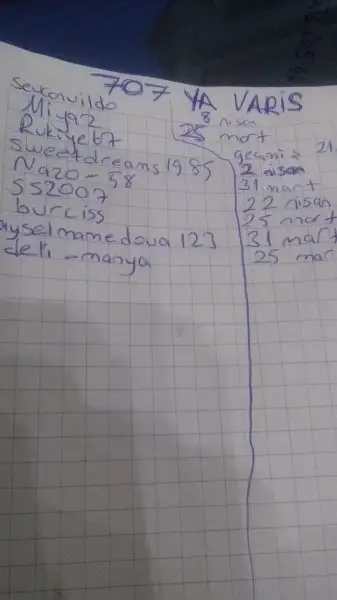 707 YA VARIS
8 nisan
Miya2
25 mart
Rukiye67
sweetdreams 1985
2 nisan
Nazo-58
31 mart
SS2007
22 nisan
burciss
25 mart
ayselmamedova 123
31 mart
deli-manya
25 mar